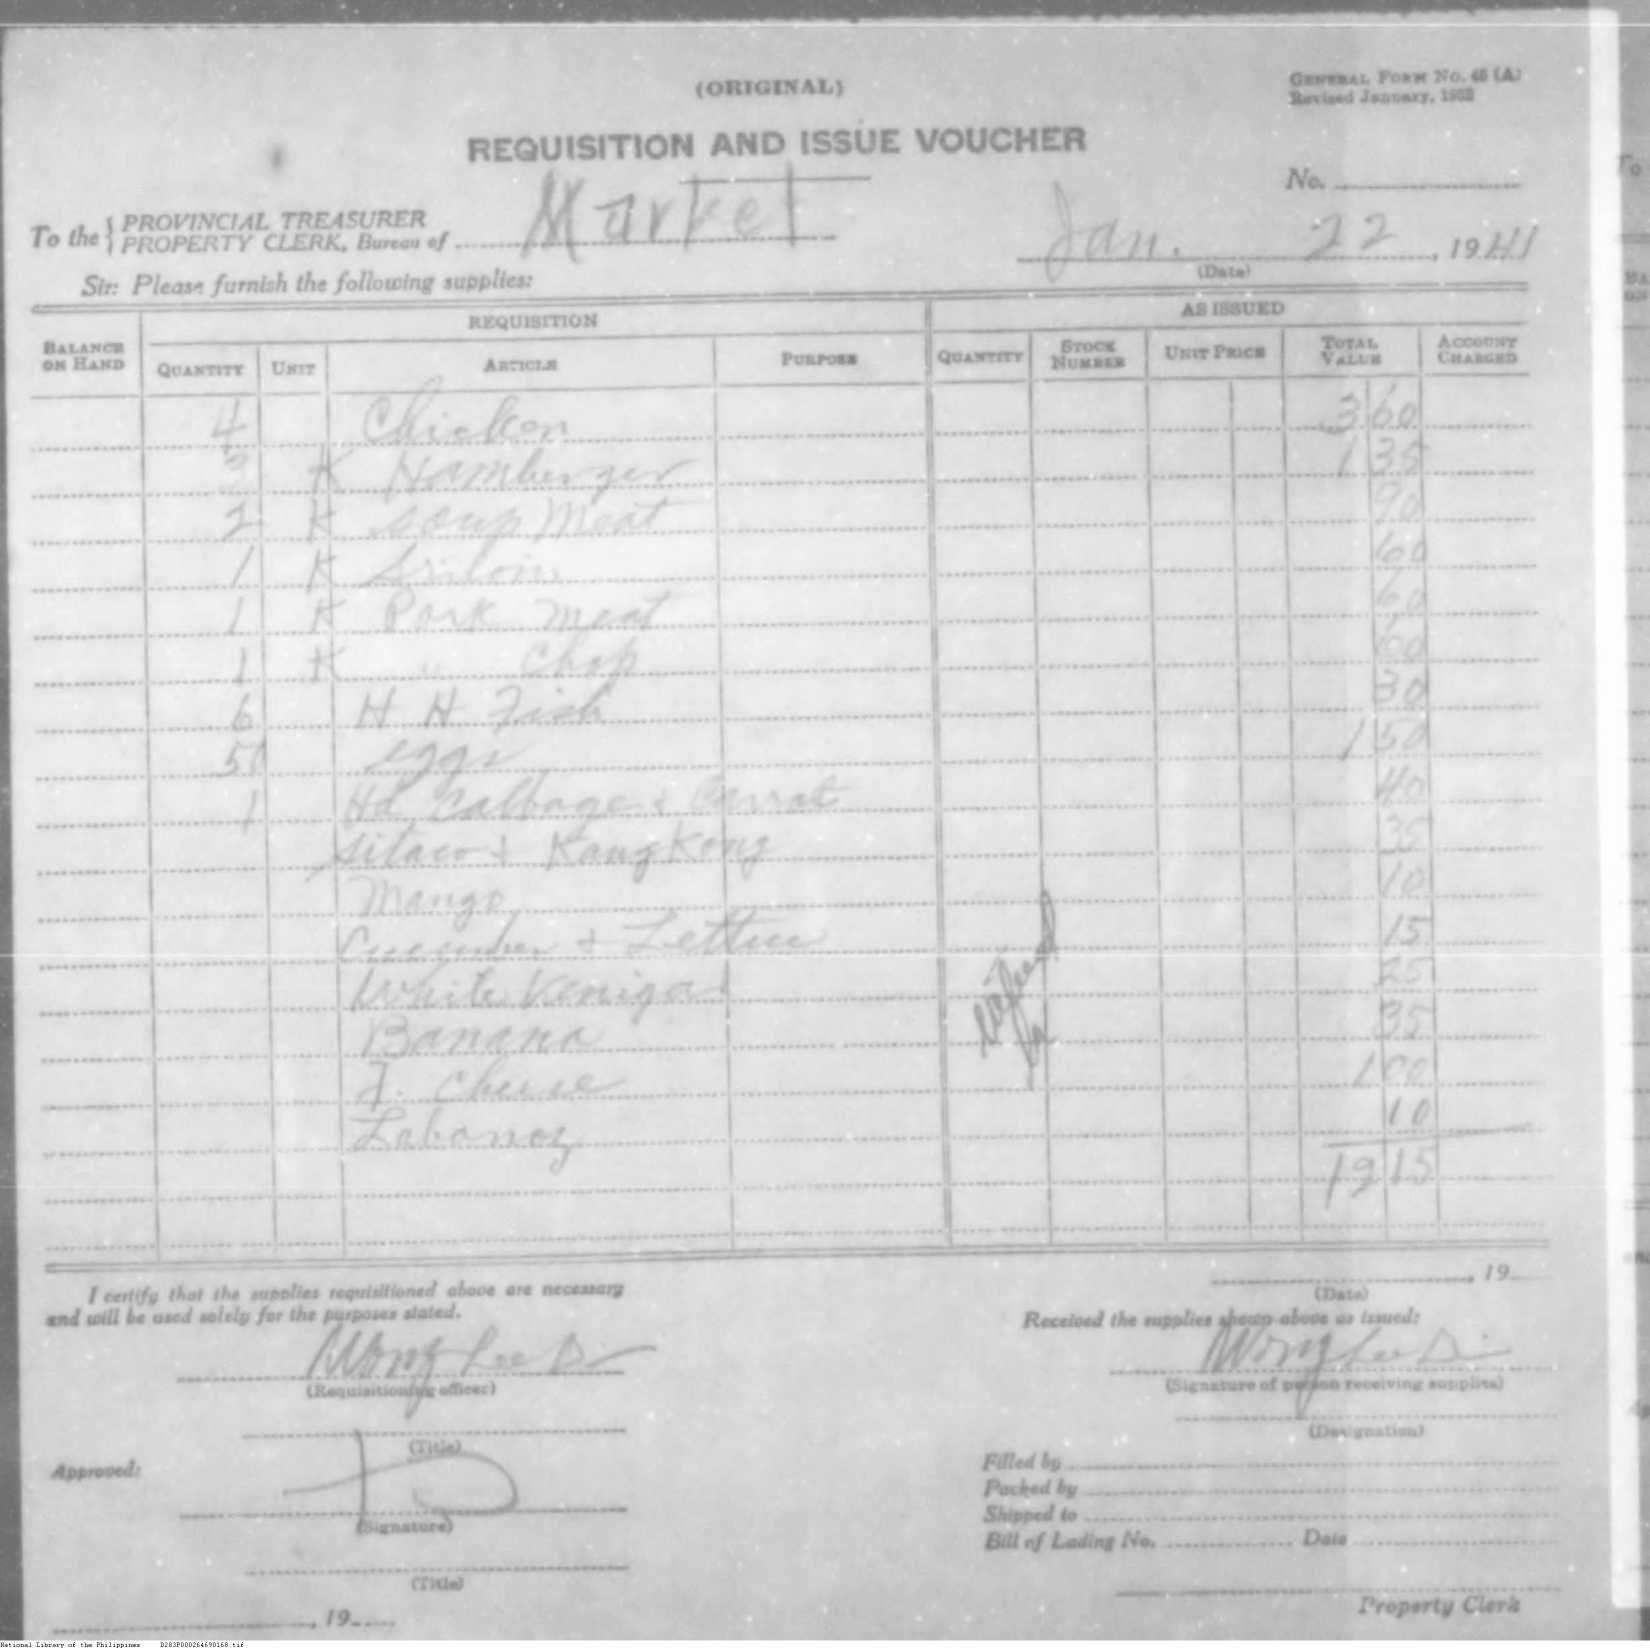 (ORIGINAL)
GENERAL FORM No. 45 (A)
Revised January, 1932
REQUISITION AND ISSUE VOUCHER
No.
To the { PROVINCIAL TREASURER
PROPERTY CLERK, Bureau of Market
Jan. 22, 1941
(Date)
Sir: Please furnish the following supplies:
REQUISITION AS ISSUED
BALANCE ON HAND QUANTITY UNIT ARTICLE PURPOSE QUANTITY STOCK NUMBER UNIT PRICE TOTAL VALUE ACCOUNT CHARGED
4 Chicken 3 60
K Hamberger 1 35
2 K Soup Meat 90
1 K Sriloin 60
1 K Pork meat 60
1 K " Chop 60
6 H H Fish 30
50 eggs 1 50
1 Hd Calbage & Carrot 40
sitaw & KangKong 35
Mango 10
Cucumber & Lettuce 15
White Veniga 25
Banana 35
F. Cheese 1 00
Labanoz 10
19 15
I certify that the supplies requisitioned above are necessary
and will be used solely for the purposes stated.
, 19
(Date)
Received the supplies shown above as issued:
Wong Lee
(Requisitioning officer)
Wong Lee
(Signature of person receiving supplies)
(Title)
(Designation)
Approved:
(Signature)
(Title)
, 19
Filled by
Packed by
Shipped to
Bill of Lading No. Date
Property Clerk
National Library of the Philippines D283P000264690168.tif